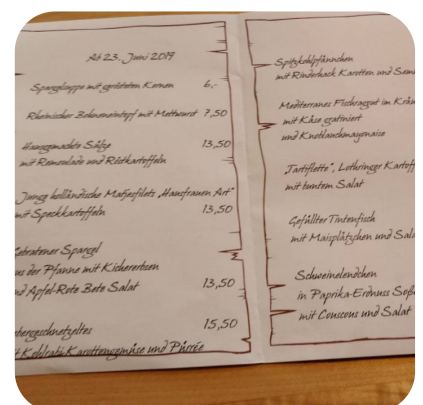 Ab 23. Juni 2019
Spargelsuppe mit gerösteten Kernen 6,-
Rheinischer Bohneneintopf mit Mettwurst 7,50
Hausgemachte Sülze 13,50
mit Remoulade und Röstkartoffeln
Junge holländische Matjesfilets „Hausfrauen Art"
mit Speckkartoffeln 13,50
Gebratener Spargel
aus der Pfanne mit Kichererbsen
und Apfel-Rote Bete Salat 13,50
15,50
mit Kohlrabi-Karottengemüse und Pürree
Spitzkohlpfännchen
mit Rinderhack Karotten und
Mediterranes Fischragout im
mit Käse gratiniert
und Knoblauchmayonaise
„Tartiflette", Lothringer
mit buntem Salat
Gefüllter Tintenfisch
mit Maisplätzchen und
Schweinelendchen
in Paprika-Erdnuss
mit Couscous und Salat